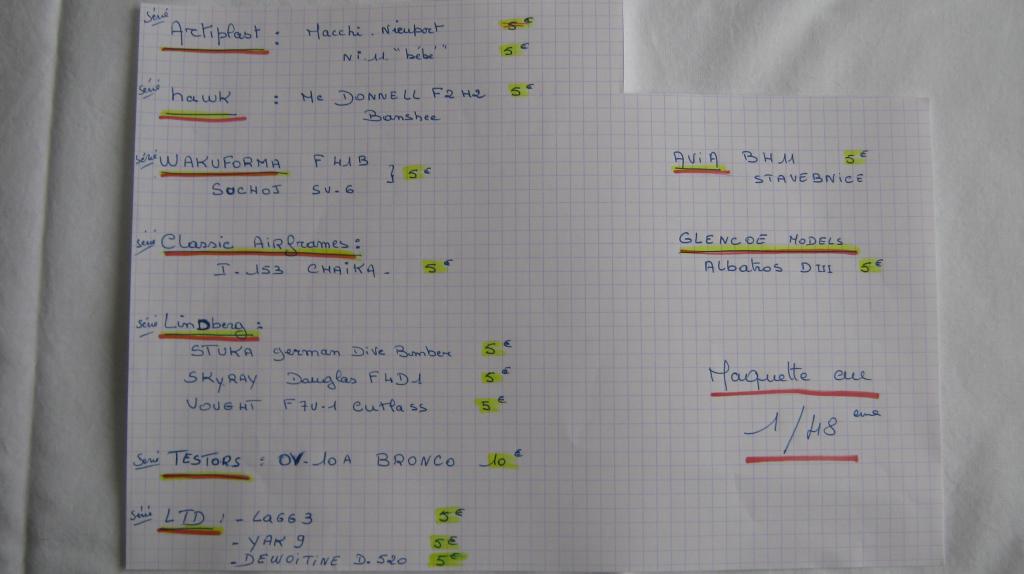 Série Artiplast : Macchi. Nieuport 5€
Ni. 11 "bébé" 5€
Série hawk : Mc DONNELL F2H2 5€
Banshee
Série WAKUFORMA F41B } 5€
SUCHOJ SV-6
Série Classic Airframes :
I-153 CHAIKA - 5€
Série LinDberg :
STUKA german Dive Bumber 5€
SKYRAY Douglas F4D1 5€
VOUGHT F7U-1 Cutlass 5€
Série TESTORS : OV-10A BRONCO 10€
Série LTD : - LaGG 3 5€
- YAK 9 5€
- DEWOITINE D.520 5€
AViA BH11 5€
STAVEBNICE
GLENCOE MODELS
Albatros DIII 5€
Maquette au
1/48 eme